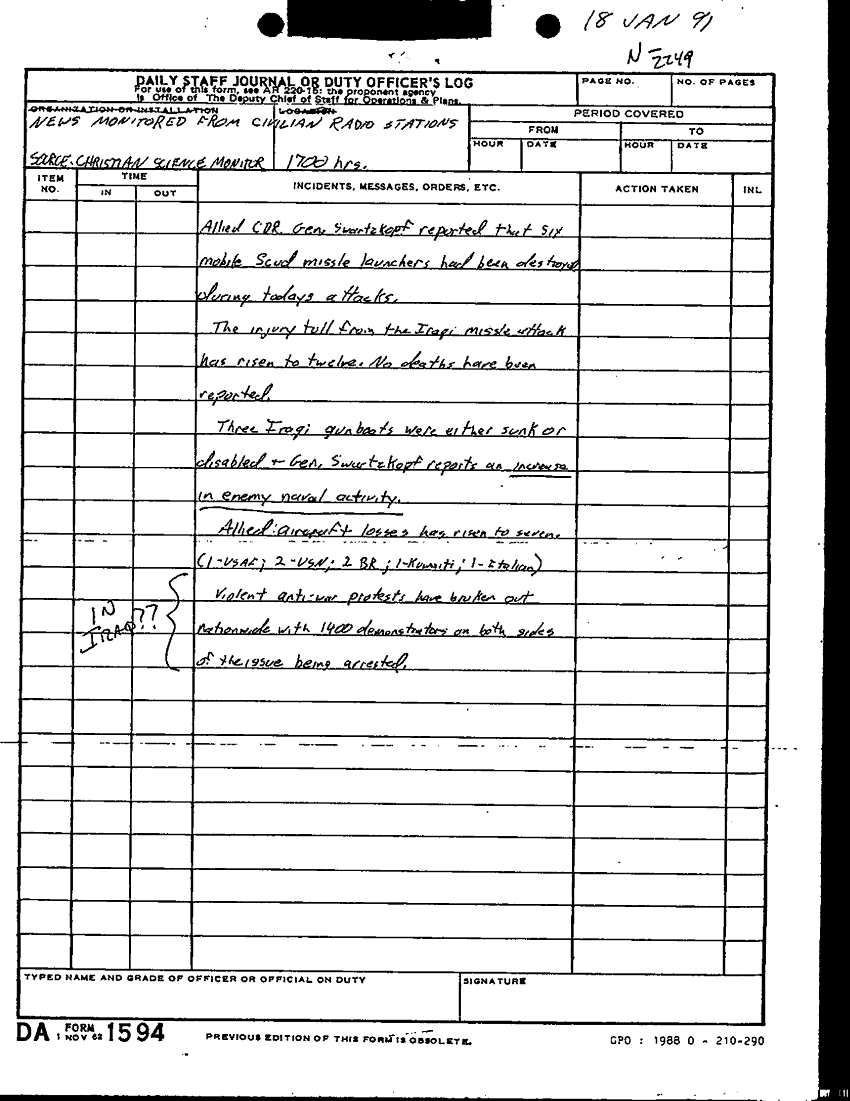 18 JAN 91
N-2249
DAILY STAFF JOURNAL OR DUTY OFFICER'S LOG
For use of this form, see AR 220-15; the proponent agency
is Office of The Deputy Chief of Staff for Operations & Plans.
PAGE NO.
NO. OF PAGES
ORGANIZATION OR INSTALLATION
LOCATION
NEWS MONITORED FROM CIVILIAN RADIO STATIONS
SOURCE. CHRISTIAN SCIENCE MONITOR
1700 hrs.
PERIOD COVERED
FROM
TO
HOUR
DATE
HOUR
DATE
ITEM NO.
TIME
IN
OUT
INCIDENTS, MESSAGES, ORDERS, ETC.
ACTION TAKEN
INL
Allied CDR. Gen. Swartzkopf reported that six
mobile Scud missle launchers had been destroyed
during todays attacks.
The injury toll from the Iraqi missle attack
has risen to twelve. No deaths have been
reported.
Three Iraqi gunboats were either sunk or
disabled + Gen. Swartzkopf reports an increase
in enemy naval activity.
Allied aircraft losses has risen to seven.
(1-USAF; 2-USN; 2 BR; 1-Kuwaiti; 1-Italian)
Violent anti-war protests have broken out
nationwide with 1400 demonstrators on both sides
of the issue being arrested.
IN
IRAQ??
TYPED NAME AND GRADE OF OFFICER OR OFFICIAL ON DUTY
SIGNATURE
DA FORM 1 NOV 62 1594
PREVIOUS EDITION OF THIS FORM IS OBSOLETE.
GPO : 1988 O - 210-290